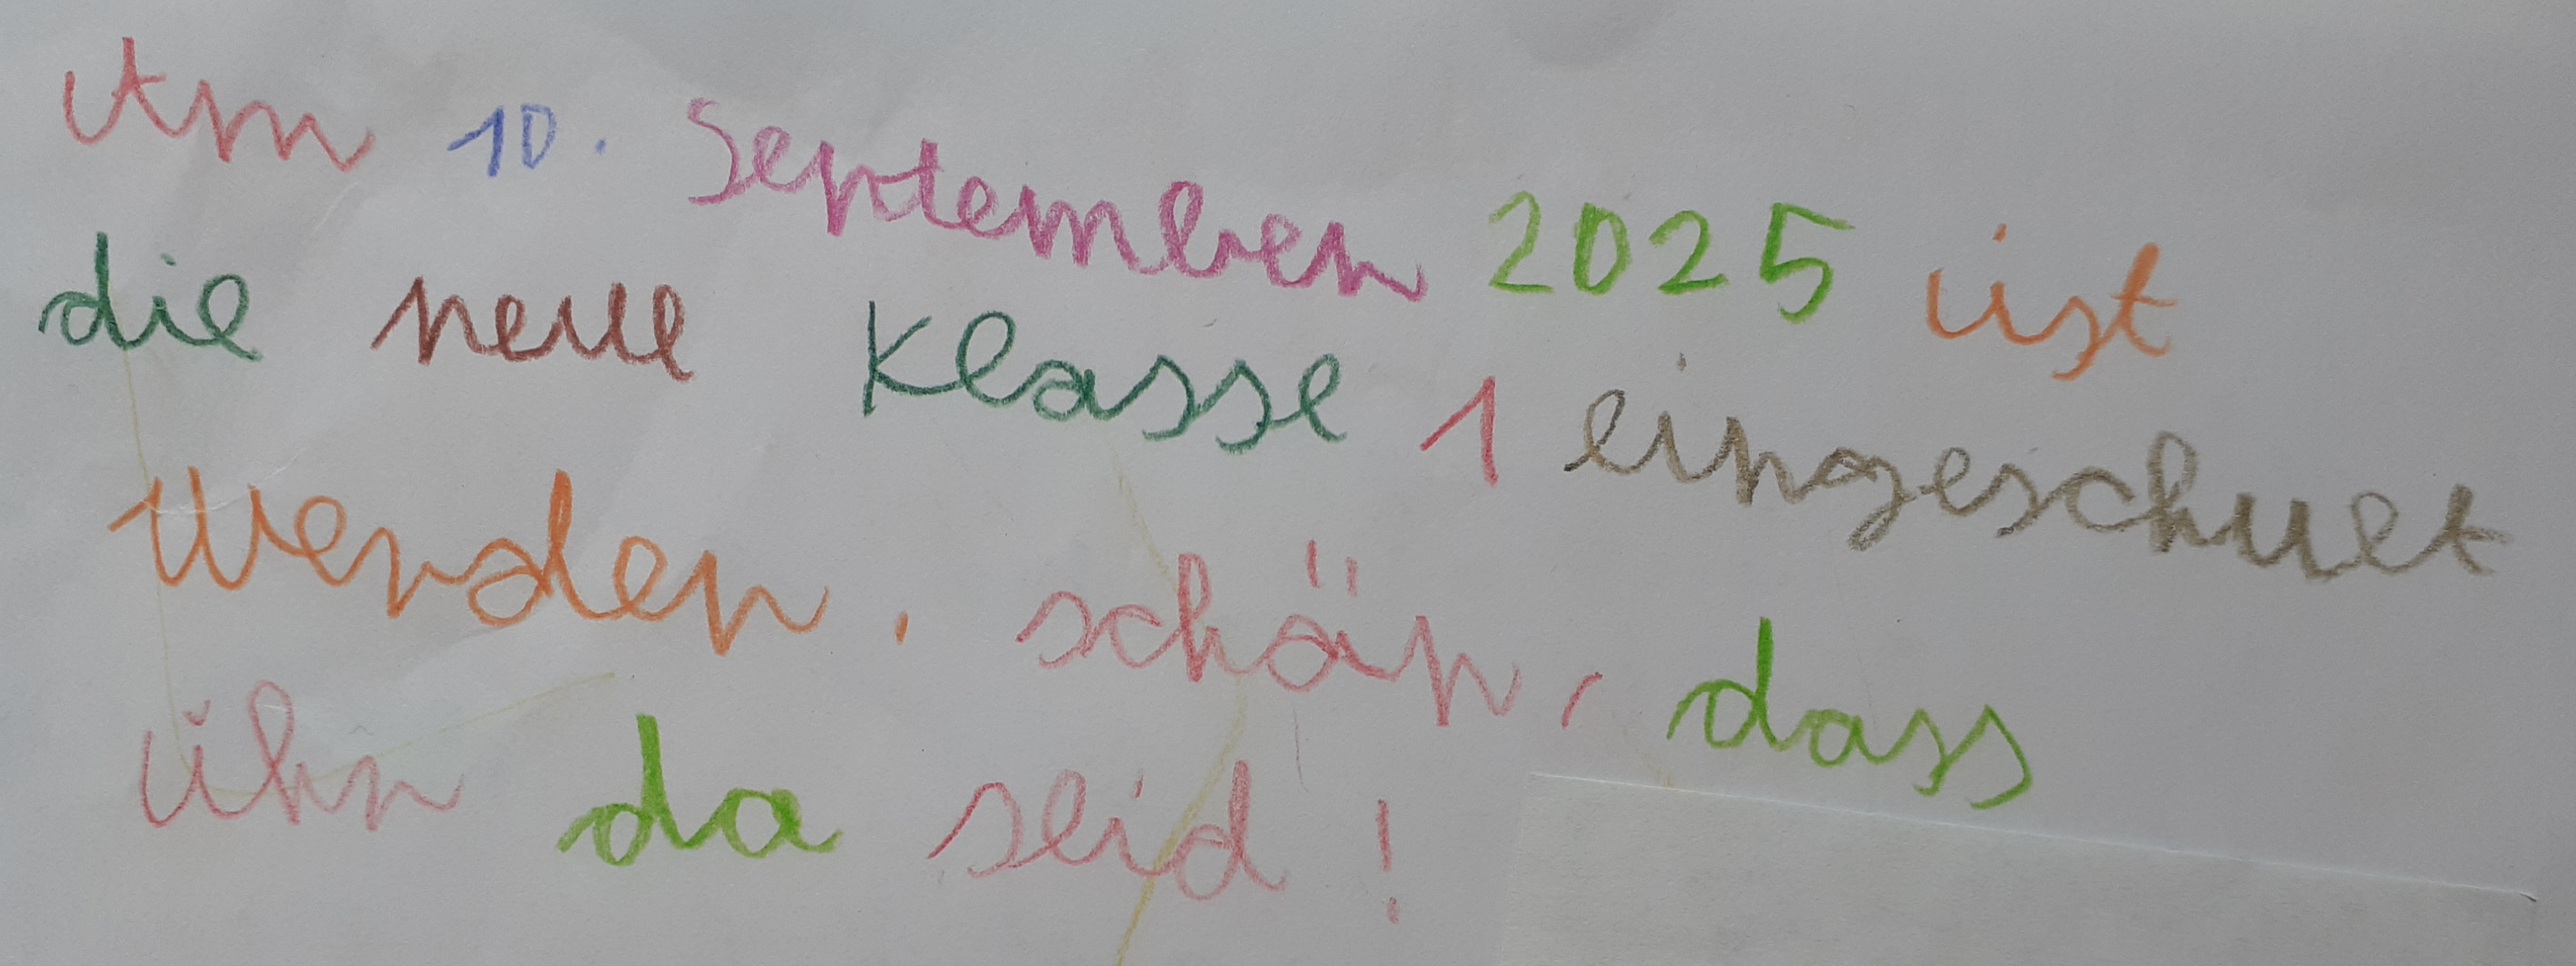 Am 10. September 2025 ist
die neue Klasse 1 eingeschult
werden. schön, dass
ihr da seid!